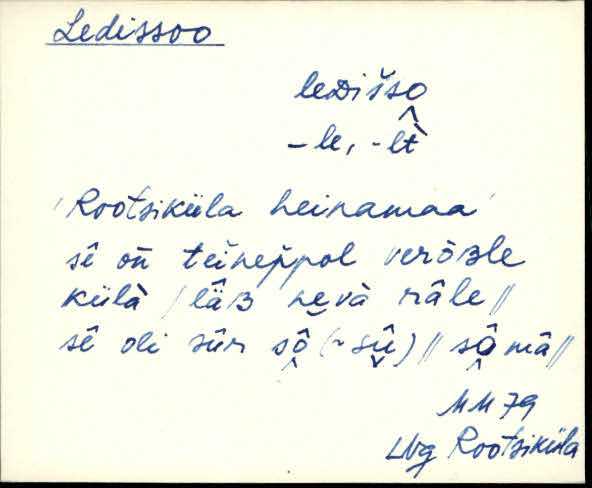 Ledissoo
leDišso
-le, -lt̀
'Rootsiküla heinamaa'
sê oñ teiñeppol verǒʙle
külà / läʙ nevà râle //
sê oli sūr sô (~sû) // sômâ //
MM 79
Lvg Rootsiküla